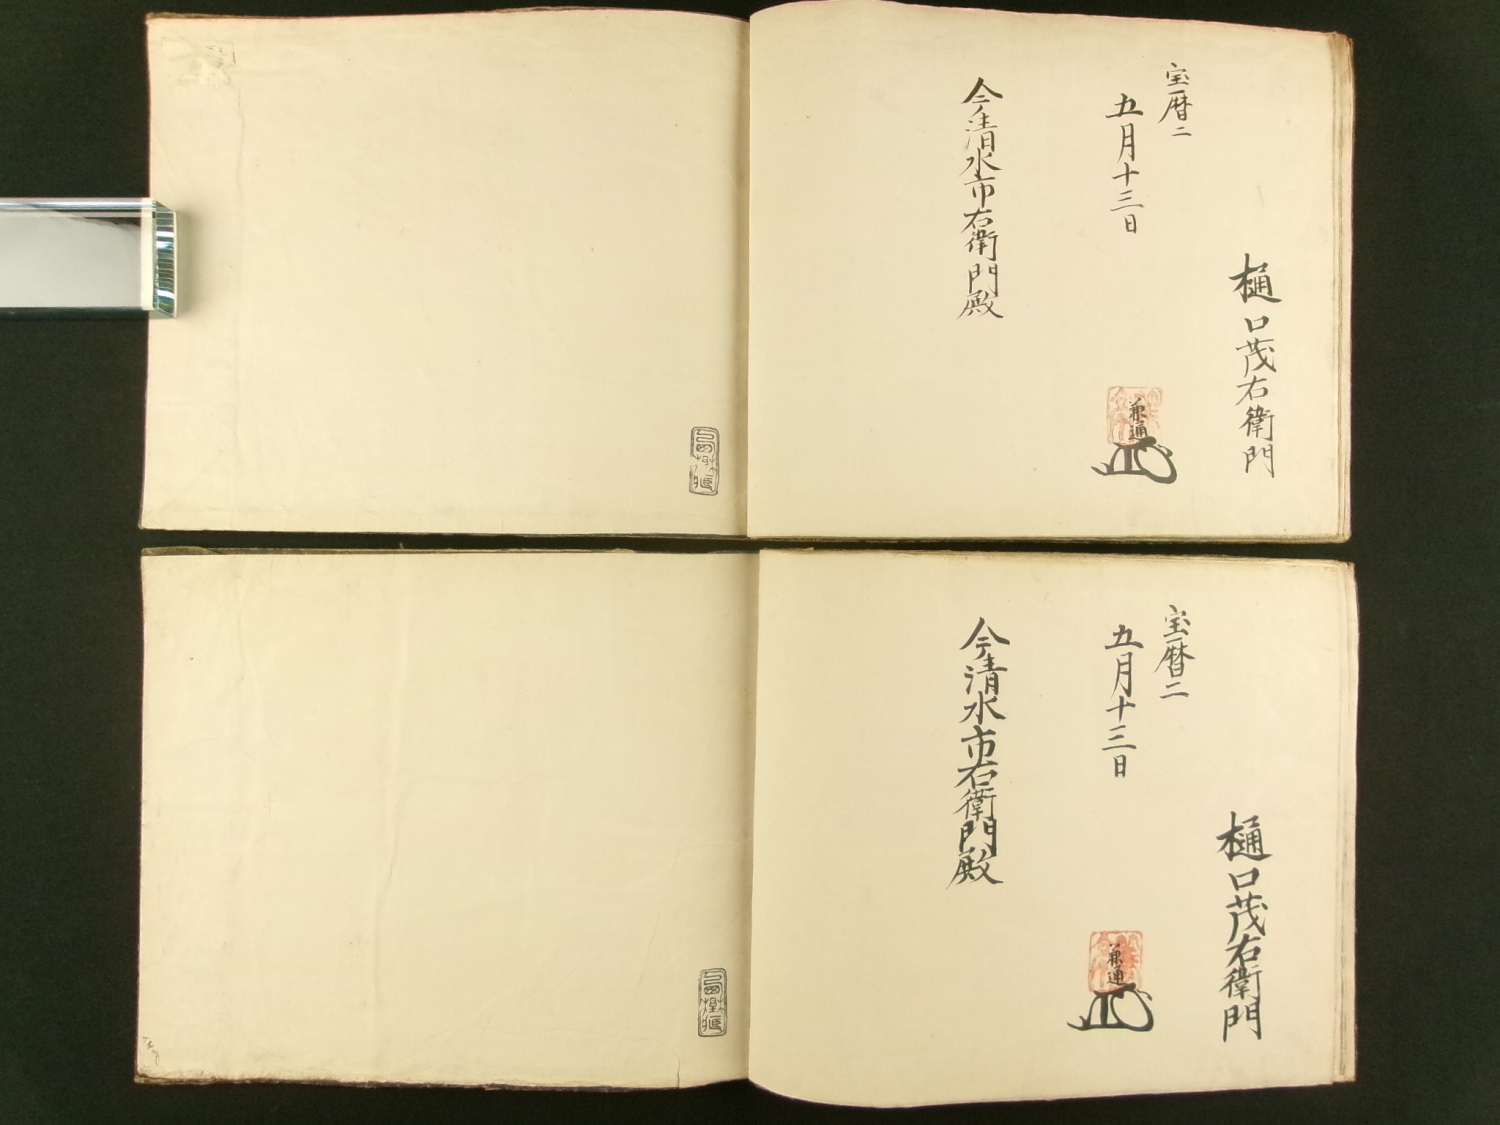 樋口茂右衛門
兼通
宝暦二
五月十三日
今清水市右衛門殿
樋口茂右衛門
兼通
宝暦二
五月十三日
今清水市右衛門殿